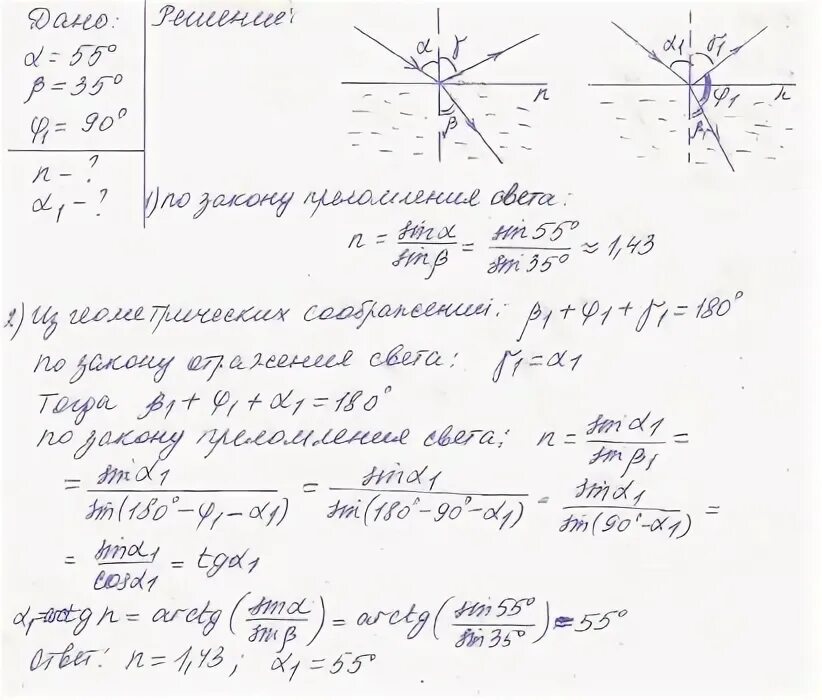 Дано: Решение:
α = 55°
β = 35°
φ₁ = 90°
n - ?
α₁ - ?
α γ n β
α₁ γ₁ n φ₁ β₁
1) по закону преломления света:
n = sinα/sinβ = sin55°/sin35° ≈ 1,43
2) Из геометрических соображений: β₁ + φ₁ + γ₁ = 180°
по закону отражения света: γ₁ = α₁
Тогда β₁ + φ₁ + α₁ = 180°
по закону преломления света: n = sinα₁/sinβ₁ =
= sinα₁/sin(180° - φ₁ - α₁) = sinα₁/sin(180° - 90° - α₁) = sinα₁/sin(90° - α₁) =
= sinα₁/cosα₁ = tgα₁
α₁ = arctg n = arctg(sinα/sinβ) = arctg(sin55°/sin35°) = 55°
Ответ: n = 1,43; α₁ = 55°